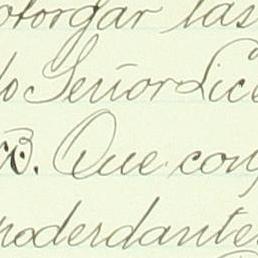 otorgar las
do Señor Lice
B. Que con
poderdante